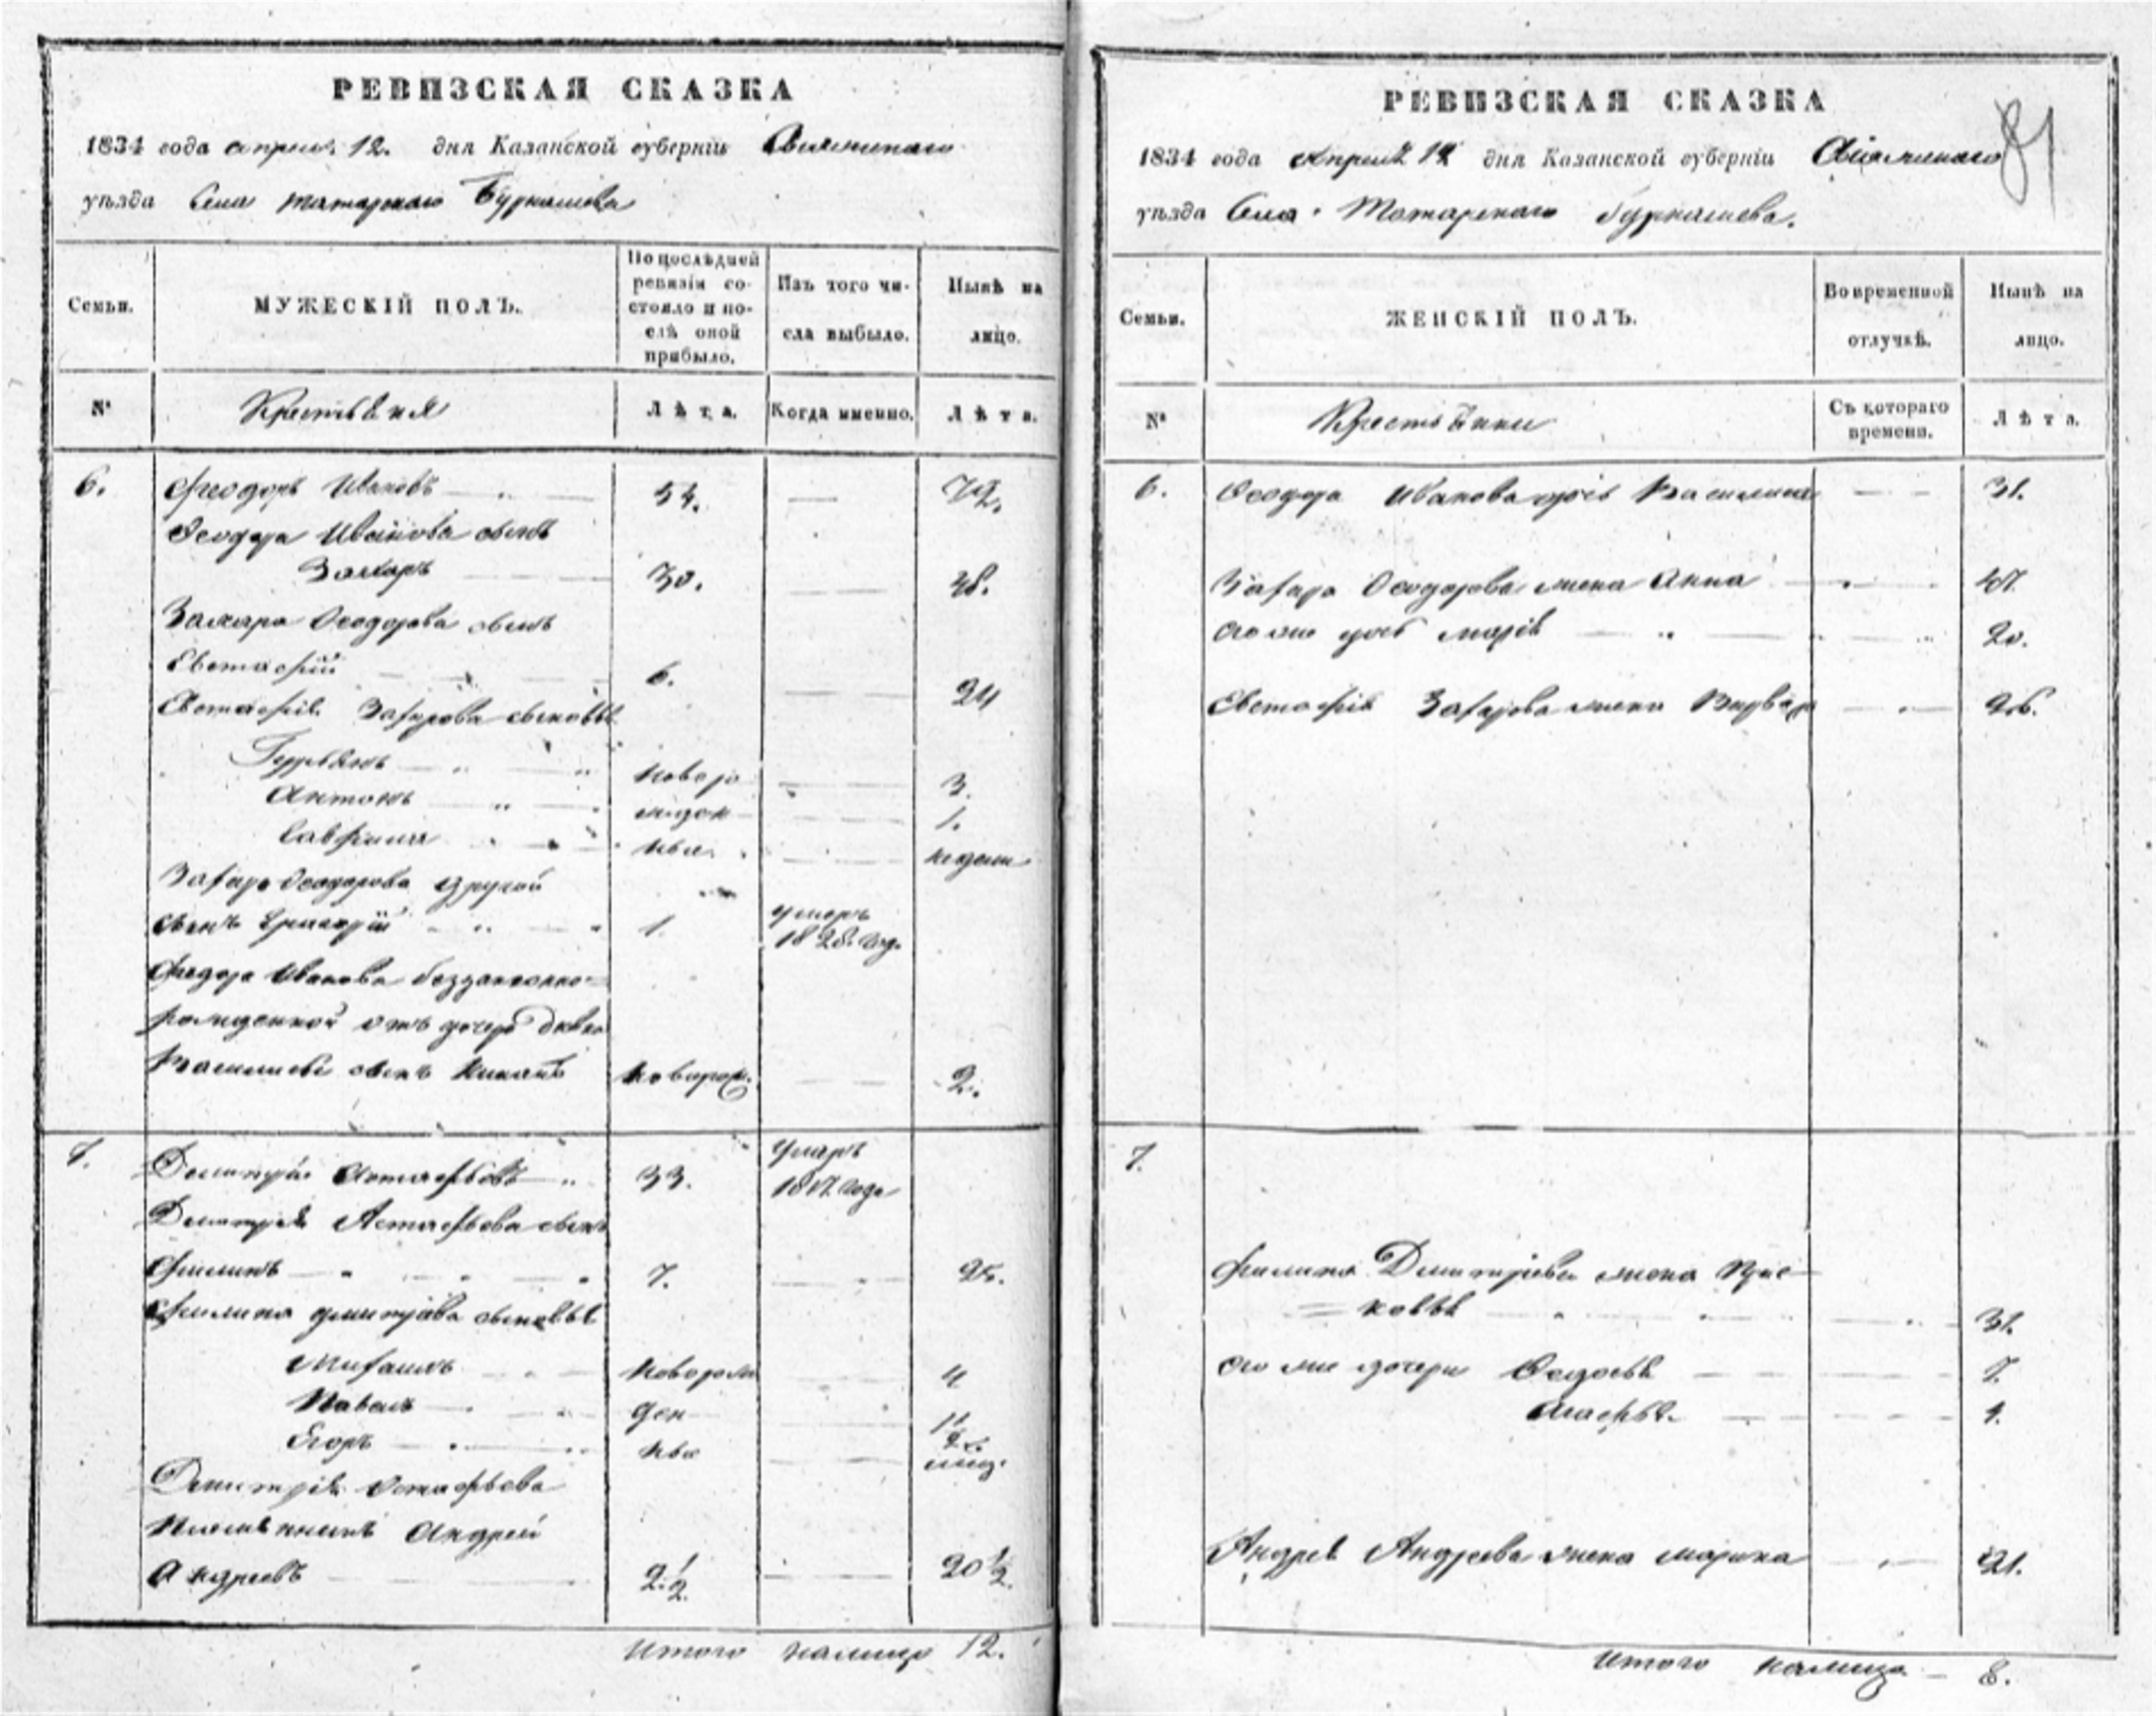 РЕВИЗСКАЯ СКАЗКА
1834 года апреля 12. дня Казанской губерніи Свіяжскаго
уѣзда Села Татарскаго Бурнашева
Семьи.
МУЖЕСКІЙ ПОЛЪ.
По послѣдней
ревизіи со-
стояло и по-
слѣ оной
прибыло.
Изъ того чи-
сла выбыло.
Нынѣ на
лицо.
№
Крестьяня
Лѣта.
Когда именно.
Лѣта.
6.
Феодоръ Ивановъ 54. 72.
Феодора Иванова сынъ
Захаръ 30. 48.
Захара Феодорова сынъ
Евстафій 6. 24
Евстафія Захарова сыновья
Гурьянъ новоро 3.
Антонъ жден 1.
ныя. недели
Захара Феодорова другой
сынъ Григорій 1. умеръ
1828. год.
Федора Иванова беззаконно
рожденной отъ дочери
Василисы сынъ новорож. 2.
7.
Дмитрій Астафьевъ 33. умеръ
1817. года
Дмитрія Астафьева сынъ
Филипъ 7. 25.
Филипа Дмитріева сыновья
Михаилъ новорож 4
Павелъ ден 1 1/2
Егоръ ныя
Дмитрія Остафьева
племянникъ Андрей
Андреевъ 2 1/2 20 1/2.
Итого налицо 12.
81
РЕВИЗСКАЯ СКАЗКА
1834 года апреля 12 дня Казанской губерніи Свіяжскаго
уѣзда Села Татарскаго Бурнашева.
Семьи.
ЖЕНСКІЙ ПОЛЪ.
Во временной
отлучкѣ.
Нынѣ на
лицо.
№
Крестьянки
Съ котораго
времени.
Лѣта.
6. Феодора Иванова дочь Василиса 31.
Захара Феодорова жена Анна 47.
его же дочь Марія 20.
Евстафія Захарова жена Варвара 26.
7.
Филипа Дмитріева жена Прас
ковья 31.
его же дочери Федосья 7.
Марфа 1.
Андрея Андреева жена Марина 21.
Итого налицо 8.